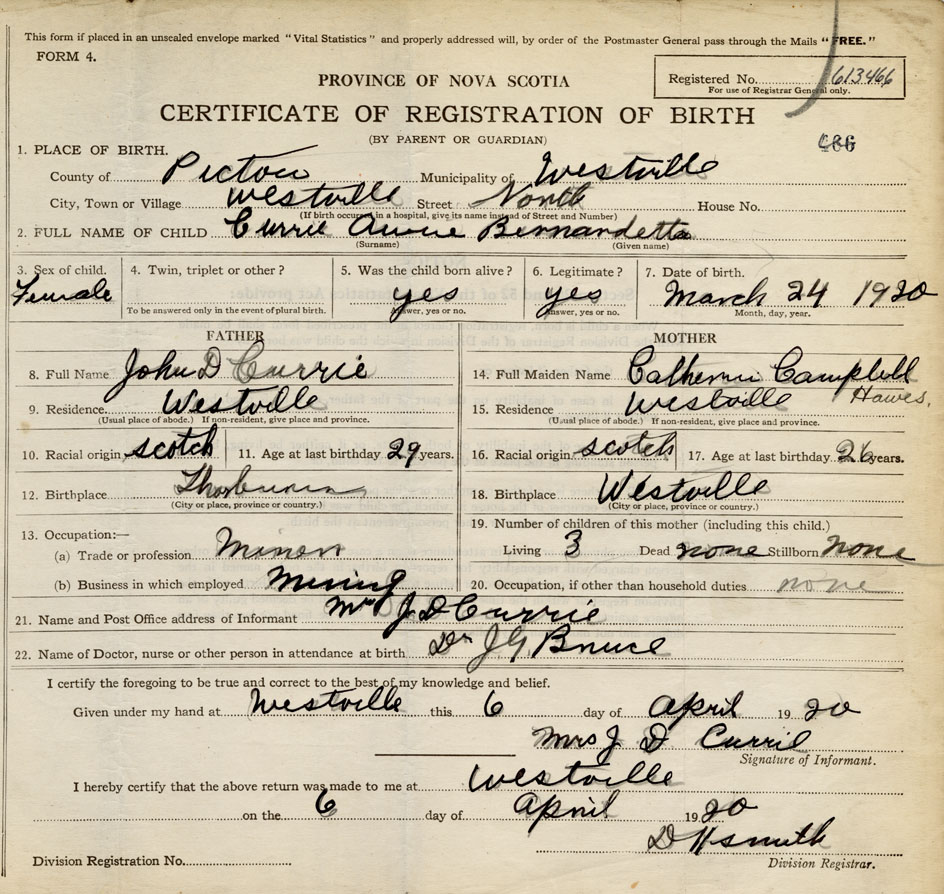 This form if placed in an unsealed envelope marked "Vital Statistics" and properly addressed will, by order of the Postmaster General pass through the Mails "FREE."
FORM 4.
PROVINCE OF NOVA SCOTIA
Registered No. 613466
For use of Registrar General only.
CERTIFICATE OF REGISTRATION OF BIRTH
(BY PARENT OR GUARDIAN)
486
1. PLACE OF BIRTH.
County of Pictou Municipality of Westville
City, Town or Village Westville Street North House No.
(If birth occurred in a hospital, give its name instead of Street and Number)
2. FULL NAME OF CHILD Currie Annie Bernandetta
(Surname) (Given name)
3. Sex of child. 4. Twin, triplet or other? 5. Was the child born alive? 6. Legitimate? 7. Date of birth.
Female yes yes March 24 1920
To be answered only in the event of plural birth. Answer, yes or no. Answer, yes or no. Month, day, year.
FATHER MOTHER
8. Full Name John D Currie 14. Full Maiden Name Catherine Campbell
Hawes,
9. Residence Westville 15. Residence Westville
(Usual place of abode.) If non-resident, give place and province. (Usual place of abode.) If non-resident, give place and province.
10. Racial origin scotch 11. Age at last birthday 29 years. 16. Racial origin scotch 17. Age at last birthday 26 years.
12. Birthplace Thorburn 18. Birthplace Westville
(City or place, province or country.) (City or place, province or country.)
13. Occupation:— 19. Number of children of this mother (including this child.)
(a) Trade or profession Minor Living 3 Dead none Stillborn none
(b) Business in which employed Mining 20. Occupation, if other than household duties none
21. Name and Post Office address of Informant Mrs J D Currie
22. Name of Doctor, nurse or other person in attendance at birth Dr J G Bruce
I certify the foregoing to be true and correct to the best of my knowledge and belief.
Given under my hand at Westville this 6 day of April 1920
Mrs J D Currie
Signature of Informant.
I hereby certify that the above return was made to me at Westville
on the 6 day of April 1920
D H Smith
Division Registration No. Division Registrar.